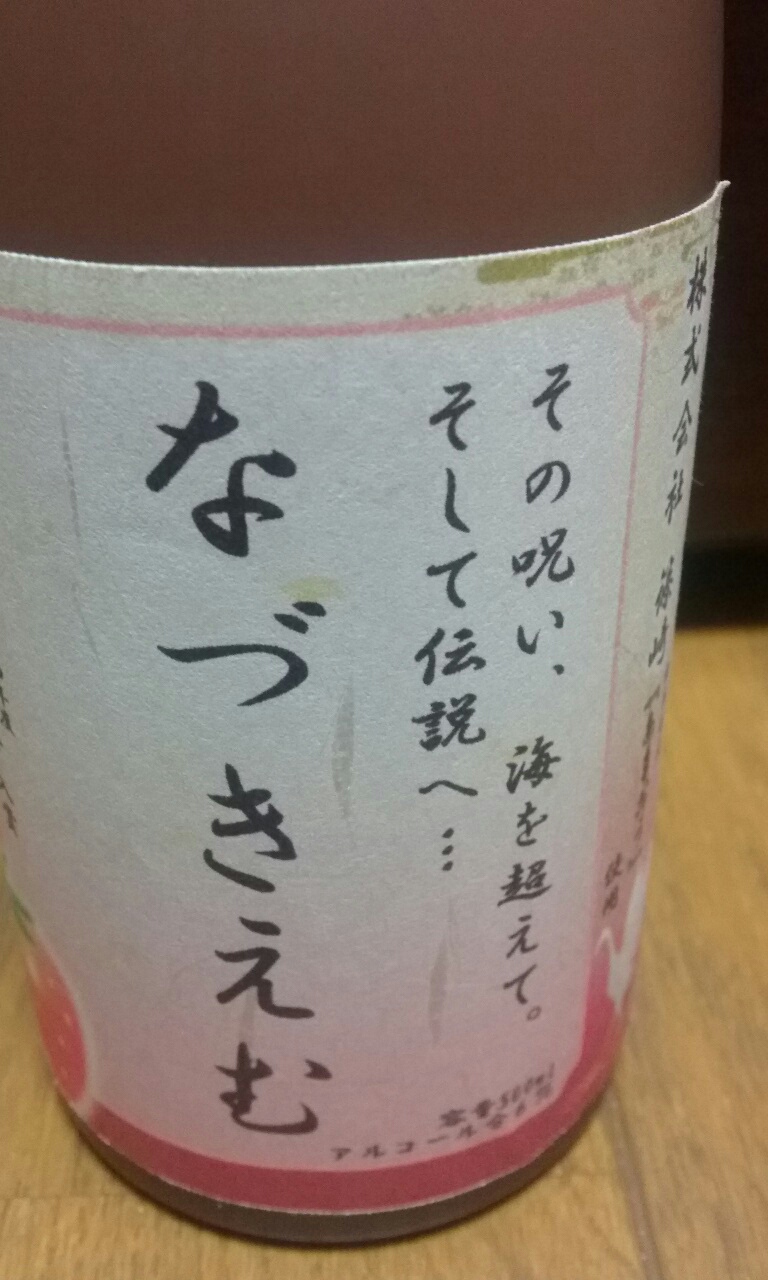 株式会社 篠崎
使用
その呪い、海を超えて。
そして伝説へ…
なづきえむ
容量500ml
アルコール分